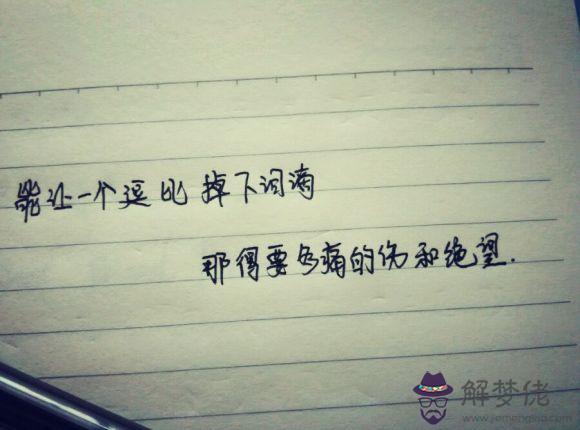 能让一个逗比 掉下泪滴
那得要多痛的伤和绝望.
解梦佬
www.jiemenglao.com